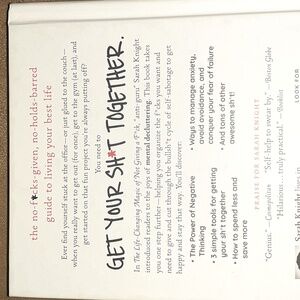 the no-f*cks-given, no-holds-barred
guide to living your best life
Ever find yourself stuck at the office—or just glued to the couch—
when you really want to get out (for once), get to the gym (at last), and
get started on that fun project you're always putting off?
You need to
GET YOUR SH*T TOGETHER.
In The Life-Changing Magic of Not Giving a F*ck, "anti-guru" Sarah Knight
introduced readers to the joys of mental decluttering. This book takes
you one step further—helping you organize the f*cks you want and
need to give and cut through the bullshit cycle of self-sabotage to get
happy and stay that way. You'll discover:
• The Power of Negative
Thinking
• 3 simple tools for getting
your sh*t together
• How to spend less and
save more
• Ways to manage anxiety,
avoid avoidance, and
conquer your fear of failure
• And tons of other
awesome sh*t!
PRAISE FOR SARAH KNIGHT
"Genius." —Cosmopolitan "Self-help to swear by." —Boston Globe
"Hilarious... truly practical." —Booklist
Sarah Knight lives in
LOOK FOR